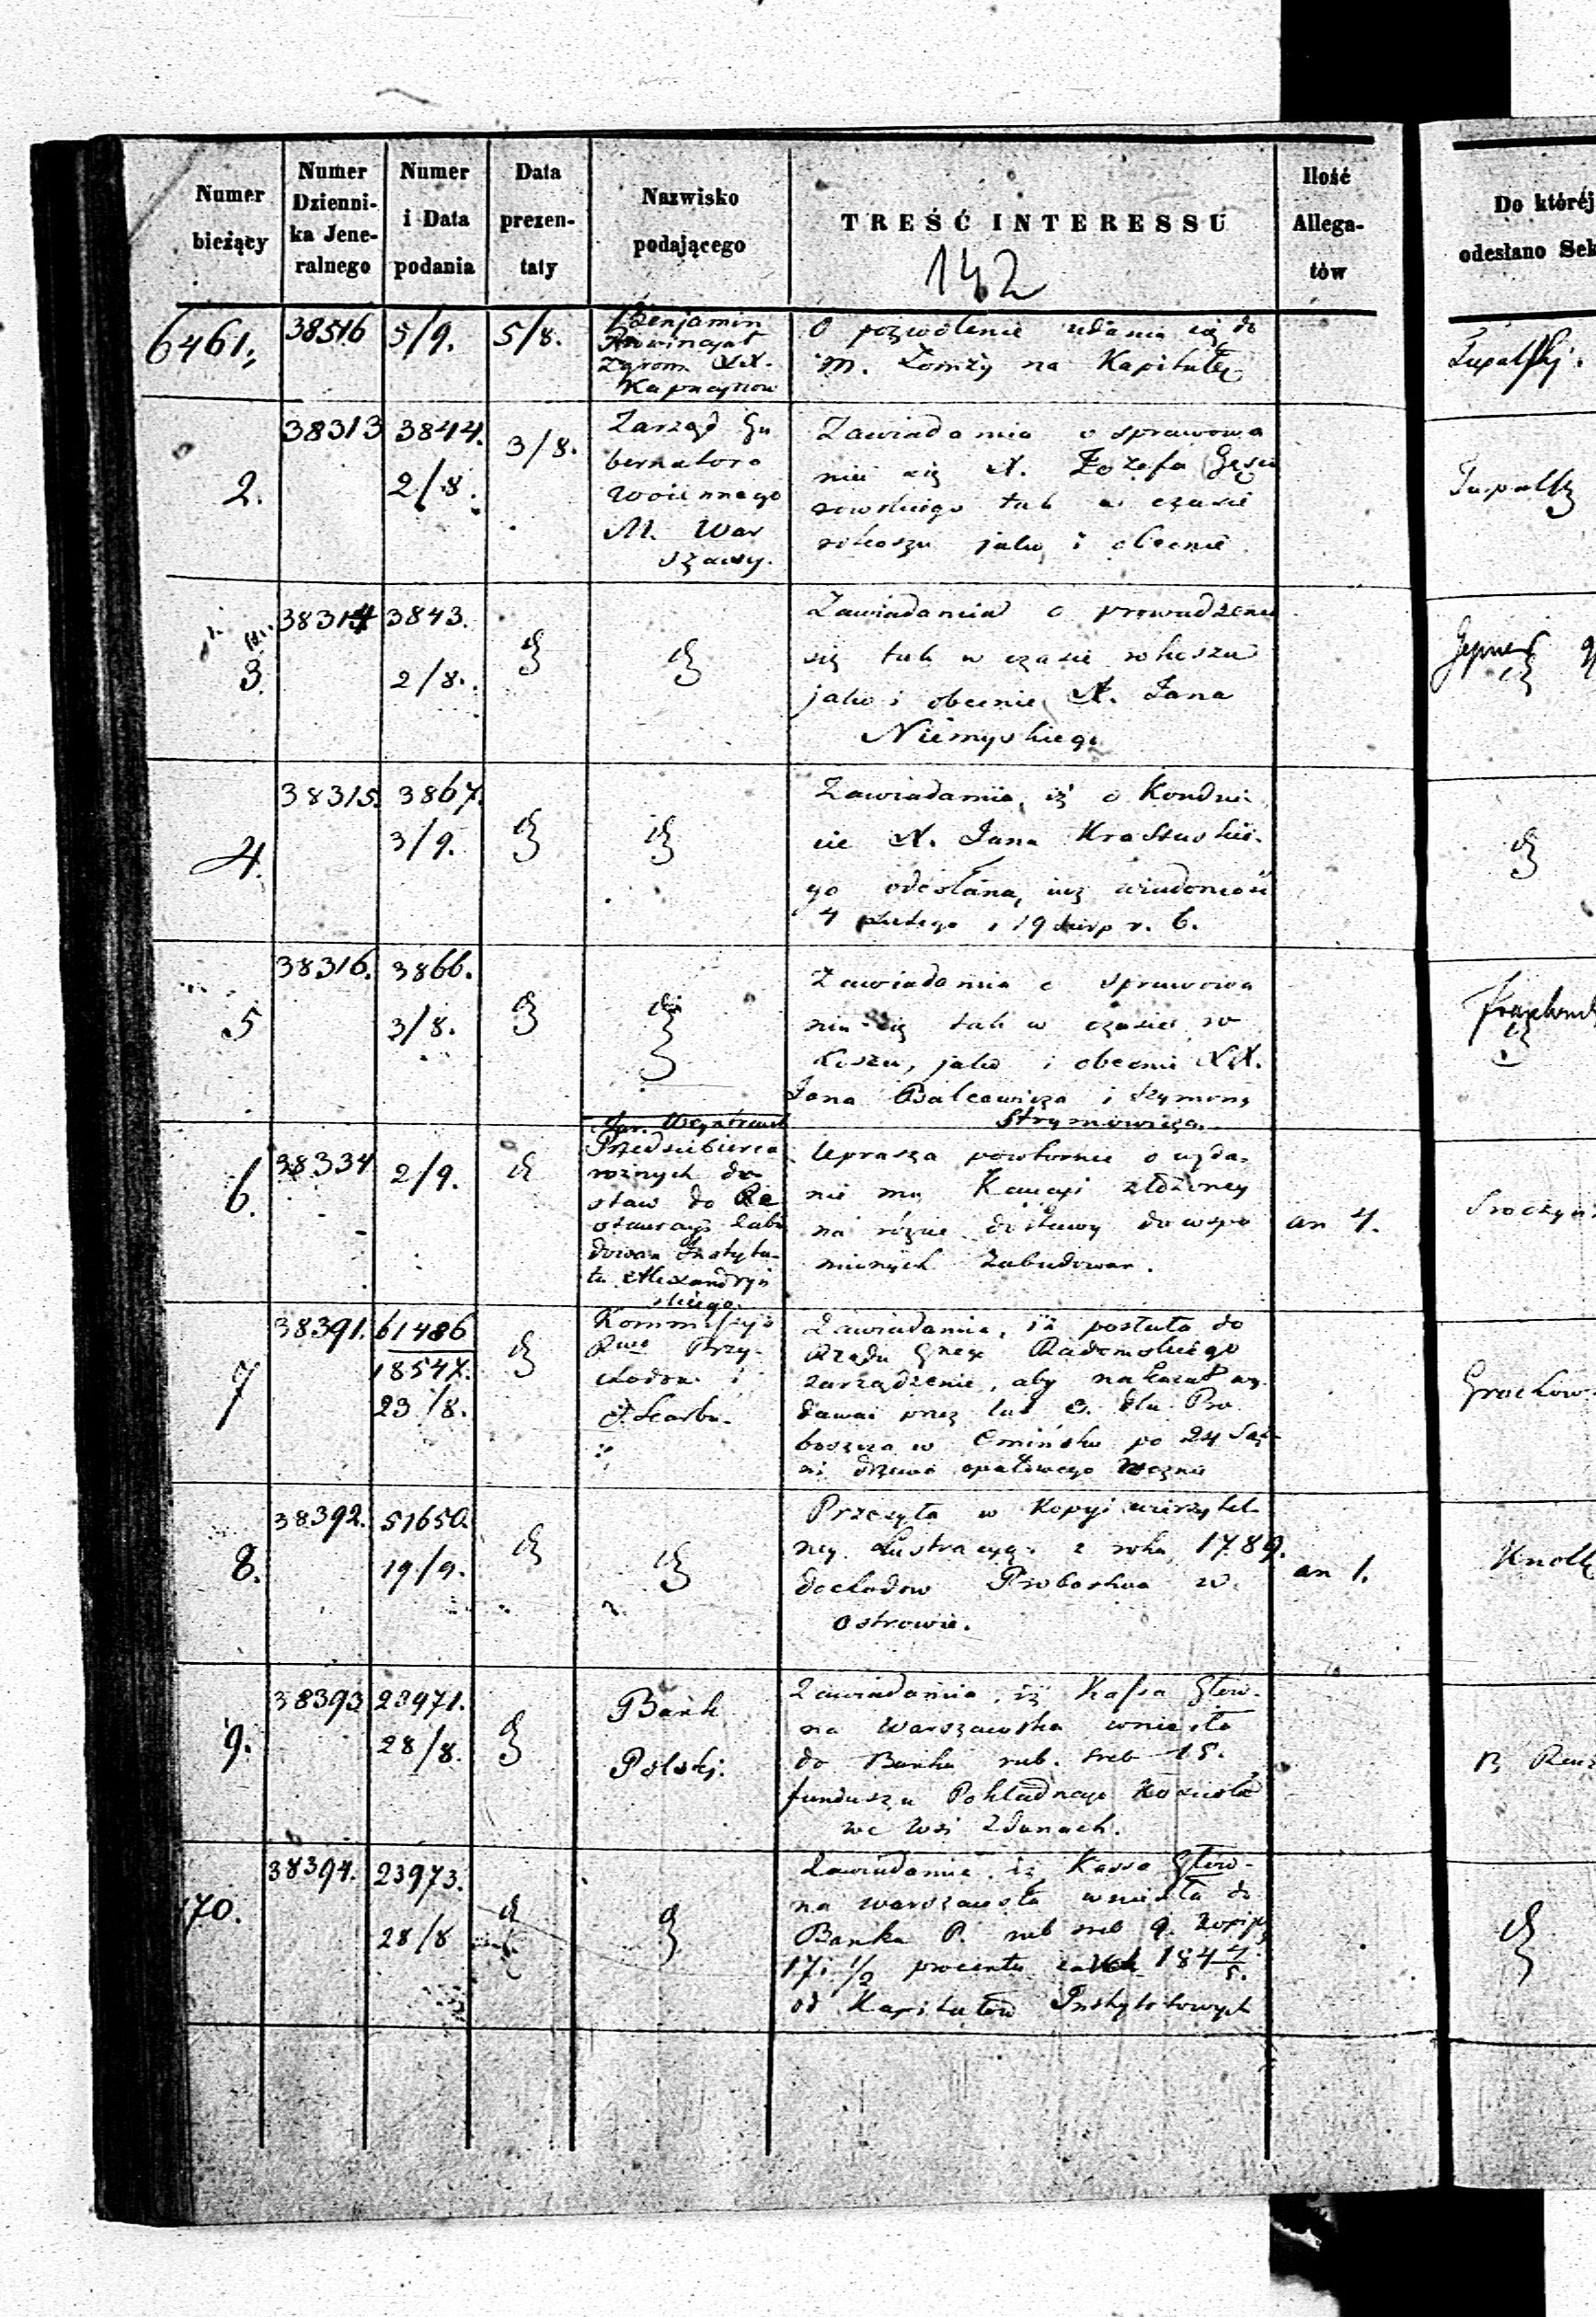 Numer bieżący
Numer Dzienni-ka Jene-ralnego
Numer i Data podania
Data prezen-taty
Nazwisko podającego
TREŚĆ INTERESSU
142
Ilość Allega-tów
Do któréj
odesłano Sek
6461.
38516
5/9.
5/8.
Benjamin
Prowincyał
Zgrom. XX.
Kapucynów
O pozwolenie udania się do
m. Łomży na Kapitułę
2.
38313
3844.
2/8.
3/8.
Zarząd Gu
bernatora
Woiennego
M. War
szawy.
Zawiadamia o sprawowa
niu się X. Józefa
tak w czasie
rokoszu jako i obecnie
3.
38314
3843.
2/8.
Zawiadamia o prowadzeniu
się tak w czasie rokoszu
jako i obecnie X. Jana
Niemyskiego
4.
38315.
3867.
3/9.
Zawiadamia, iż o Kondui
cie X. Jana Kraszuskie-
go odesłaną iuż wiadomość
4 Lutego i 19 Sierp r. b.
5
38316.
3866.
3/8.
Zawiadamia o sprawowa
niu się tak w czasie ro
koszu, jako i obecnie XX.
Jana Balcewicza i Szymona
Strymowicza.
6.
38334
2/9.
Przedsiębierca
rożnych do
staw do Re
stauracyi Zabu
dowań Instytu-
tu Alexandryi
skiego.
Uprasza powtornie o wyda-
nie mu Kaucyi złożoney
na różne dostawy do wspo
mnionych Zabudowan.
an 4.
7
38391.
61486
18547.
23/8.
Kommissya
Rwa Przy-
chodów i
Skarbu.
Zawiadamia, iż posłała do
Rządu Gnego Radomskiego
zarządzenie, aby nakazał wy
dawać przez lat 3. dla Pro
boszcza w Cmińsku po 24 Sąż-
ni drzewa opałowego rocznie
8.
38392.
51650.
19/9.
Przesyła w Kopyi wierzytel
ney Lustracyą z roku 1789.
dochodów Probostwa w
Ostrowie.
an 1.
9.
38393
23971.
28/8.
Bank
Polski.
Zawiadamia, iż Kassa Głów-
na Warszawska wniosła
do Banku rub. sreb 15.
funduszu Pokładnego Kościoła
we Wsi Zdunach.
70.
38394.
23973.
28/8
Zawiadamia, iż Kassa Głów-
na Warszawska wniosła do
Banku P. rub sreb 9. kopijk
17 1/2 procentu za rok 184 4/5.
od Kapitałów Instytutowych